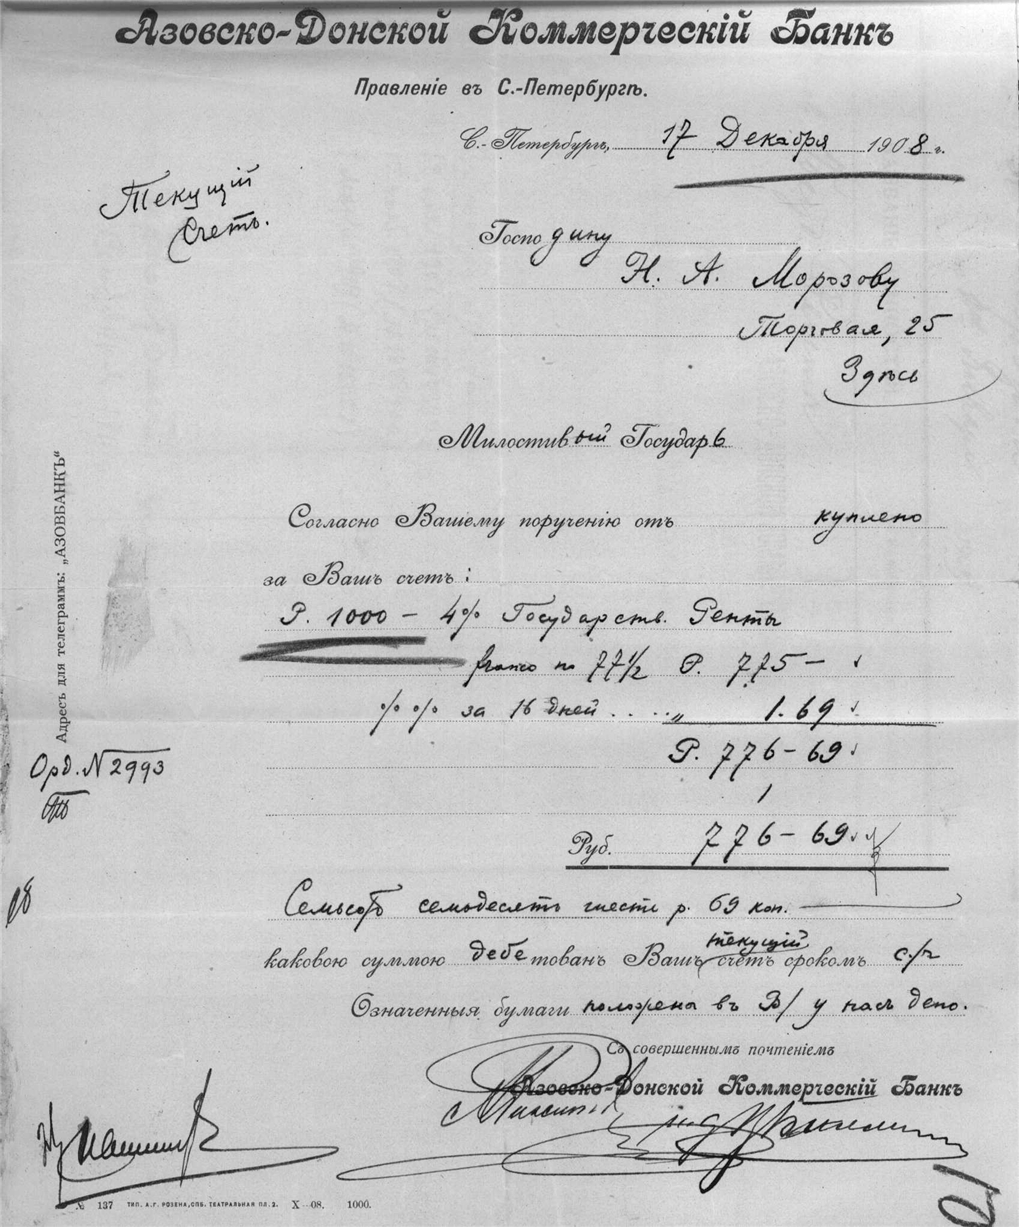 Азовско-Донской Коммерческій Банкъ
Правленіе въ С.-Петербургѣ.
С.-Петербургъ, 17 Декабря 1908 г.
Текущій
Счетъ.
Господину
Н. А. Морозову
Торговая, 25
Здѣсь
Милостивый Государь
Согласно Вашему порученію отъ куплено
за Вашъ счетъ:
Р. 1000 — 4% Государств. Ренты
franco по 77 1/2 Р. 775 —
%% за 16 дней .... „ 1.69
Р. 776 — 69
Адресъ для телеграммъ: „АЗОВБАНКЪ“
Орд. N 2993
Руб. 776 — 69
Семьсотъ семьдесятъ шесть р. 69 коп.
каковою суммою дебетованъ Вашъ текущій счетъ срокомъ с/ч
Означенныя бумаги положены въ В/ у насъ депо.
Съ совершеннымъ почтеніемъ
Азовско-Донской Коммерческій Банкъ
№ 137 ТИП. А. Г. РОЗЕНА, СПБ. ТЕАТРАЛЬНАЯ ПЛ. 2. X—08. 1000.